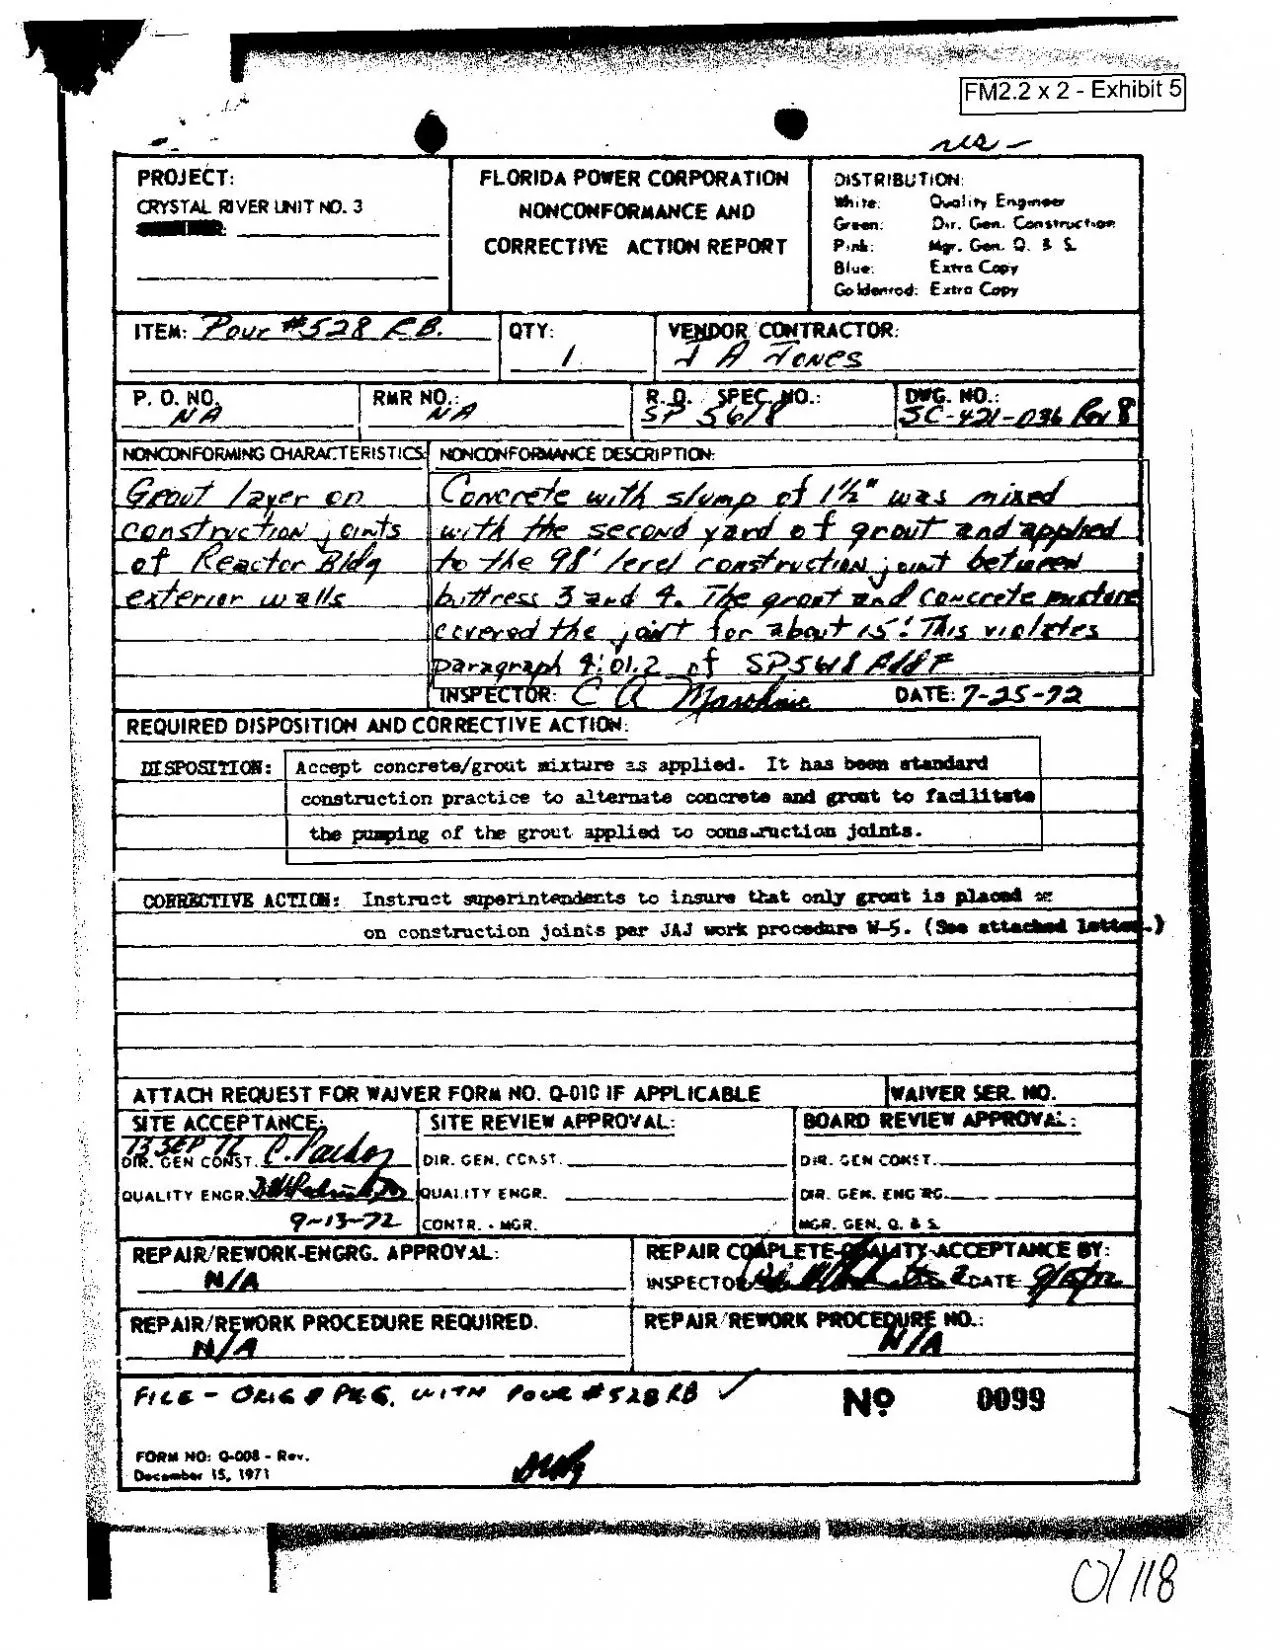 FM2.2 x 2 - Exhibit 5
PROJECT:
CRYSTAL RIVER UNIT NO. 3
FLORIDA POWER CORPORATION
NONCONFORMANCE AND
CORRECTIVE ACTION REPORT
DISTRIBUTION:
White: Quality Engineer
Green: Dir. Gen. Construction
Pink: Mgr. Gen. Q. & S.
Blue: Extra Copy
Goldenrod: Extra Copy
ITEM: Pour #528 R.B.
QTY:
1
VENDOR CONTRACTOR:
J A Jones
P. O. NO.
NA
RMR NO.:
NA
R.O. SPEC. NO.:
SP 5618
DWG. NO.:
SC-421-036 Rev 8
NONCONFORMING CHARACTERISTICS:
Grout layer on
construction joints
of Reactor Bldg
exterior walls
NONCONFORMANCE DESCRIPTION:
Concrete with slump of 1½" was mixed
with the second yard of grout and applied
to the 98' level construction joint between
buttress 3 and 4. The grout and concrete mixture
covered the joint for about 15'. This violates
paragraph 9:01.2 of SP5618 Add F
INSPECTOR: C A DATE: 7-25-72
REQUIRED DISPOSITION AND CORRECTIVE ACTION:
DISPOSITION: Accept concrete/grout mixture as applied. It has been standard
construction practice to alternate concrete and grout to facilitate
the pumping of the grout applied to construction joints.
CORRECTIVE ACTION: Instruct superintendents to insure that only grout is placed
on construction joints per JAJ work procedure W-5. (See attached letter.)
ATTACH REQUEST FOR WAIVER FORM NO. Q-010 IF APPLICABLE
WAIVER SER. NO.
SITE ACCEPTANCE:
13 SEP 72
DIR. GEN CONST.
QUALITY ENGR.
9-13-72
SITE REVIEW APPROVAL:
DIR. GEN. CONST.
QUALITY ENGR.
CONTR. - MGR.
BOARD REVIEW APPROVAL:
DIR. GEN CONST.
DIR. GEN. ENG'RG.
MGR. GEN. Q. & S.
REPAIR/REWORK-ENGRG. APPROVAL:
N/A
REPAIR COMPLETE-QUALITY-ACCEPTANCE BY:
INSPECTOR DATE
REPAIR/REWORK PROCEDURE REQUIRED.
N/A
REPAIR/REWORK PROCEDURE NO.:
N/A
FILE - ORIG & PKG. WITH POUR #528 RB ✓
No 0099
FORM NO: Q-008 - Rev.
December 15, 1971
01118